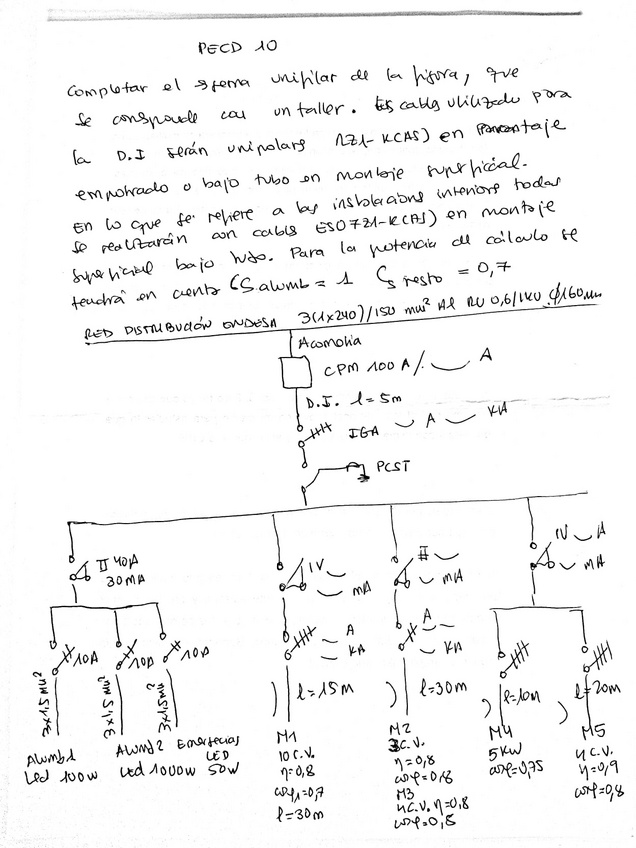 PECD 10
Completar el sistema unifilar de la figura, que
se corresponde con un taller. El cable utilizado para
la D.I serán unipolares RZ1-K(AS) en montaje
empotrado o bajo tubo en montaje superficial.
En lo que se refiere a las instalaciones interiores todas
se realizarán con cable ES07Z1-K(AS) en montaje
superficial bajo tubo. Para la potencia de cálculo se
tendrá en cuenta Cs alumb = 1 Cs resto = 0,7
RED DISTRIBUCIÓN ENDESA 3(1x240)/150 mm² Al RV 0,6/1KV ϕ160mm
Acometida
CPM 100 A/ A
D.I. l=5m
IGA A KA
PCST
II 40A
30MA
IV
mA
II
mA
IV A
mA
10A
10A
10A
A
KA
A
KA
3x1,5mm²
3x1,5mm²
3x1,5mm²
l=15m
l=30m
l=10m
l=20m
Alumb1
Led 100w
Alumb2
Led 1000w
Emergencias
LED
50w
M1
10 C.V.
η=0,8
cosφ1=0,7
l=30m
M2
3C.V.
η=0,8
cosφ=0,8
M3
4C.V. η=0,8
cosφ=0,8
M4
5KW
cosφ=0,75
M5
4C.V.
η=0,9
cosφ=0,8